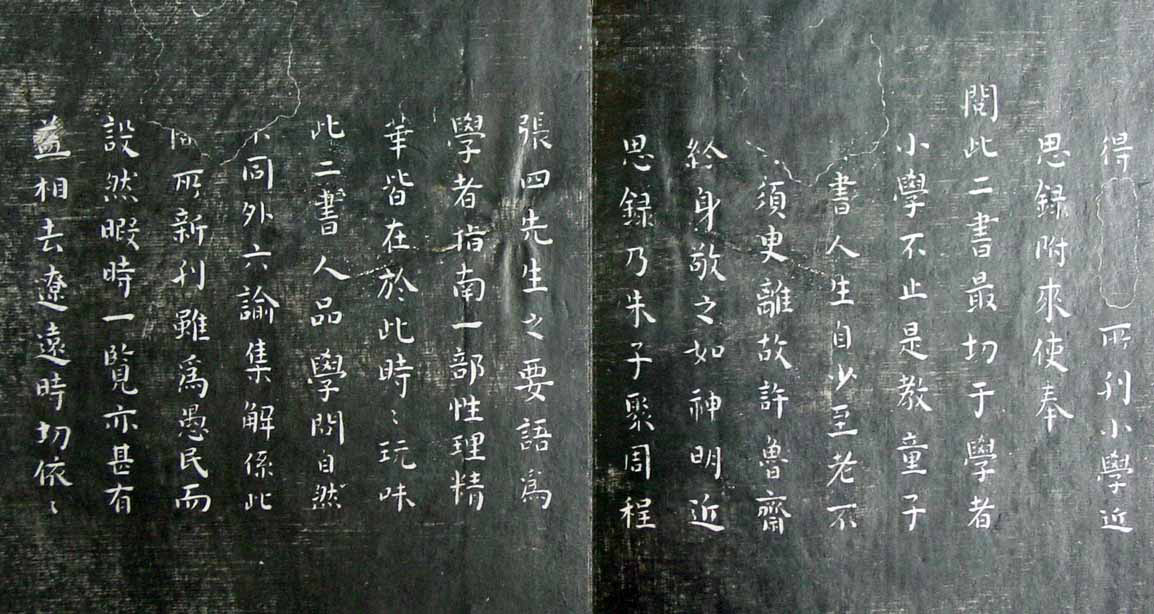 得 所刊小學近
思録附來使奉
閲此二書最切于學者
小學不止是教童子
書人生自少至老不
須臾離故許魯齋
終身敬之如神明近
思録乃朱子聚周程
張四先生之要語爲
學者指南一部性理精
華皆在於此時〻玩味
此二書人品學問自然
不同外六諭集解係此
間所新刊雖爲愚民而
設然暇時一覧亦甚有
益相去遼遠時切依〻